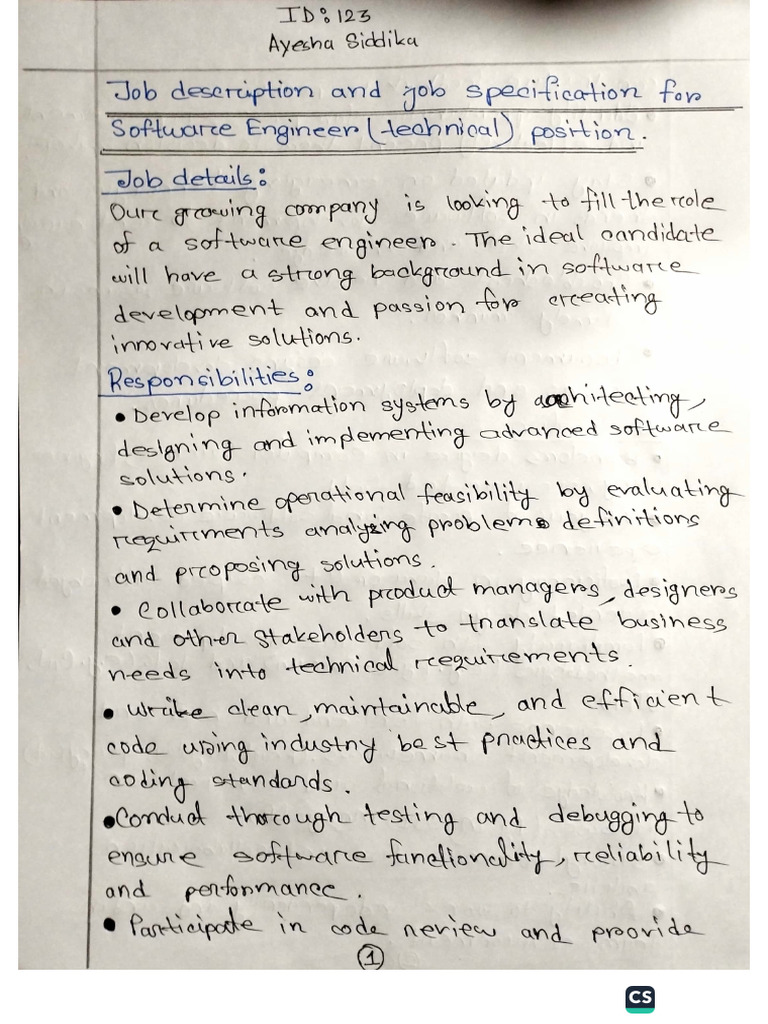 ID: 123
Ayesha Siddika
Job description and job specification for
Software Engineer (technical) position.
Job details:
Our growing company is looking to fill the role
of a software engineer. The ideal candidate
will have a strong background in software
development and passion for creating
innovative solutions.
Responsibilities:
• Develop information systems by architecting,
designing and implementing advanced software
solutions.
• Determine operational feasibility by evaluating
requirments analyzing problems definitions
and proposing solutions.
• Collaborate with product managers, designers
and other stakeholders to translate business
needs into technical requirements.
• Write clean, maintainable, and efficient
code using industry best practices and
coding standards.
• Conduct thorough testing and debugging to
ensure software functionality, reliability
and performance.
• Participate in code review and proovide
1
CS